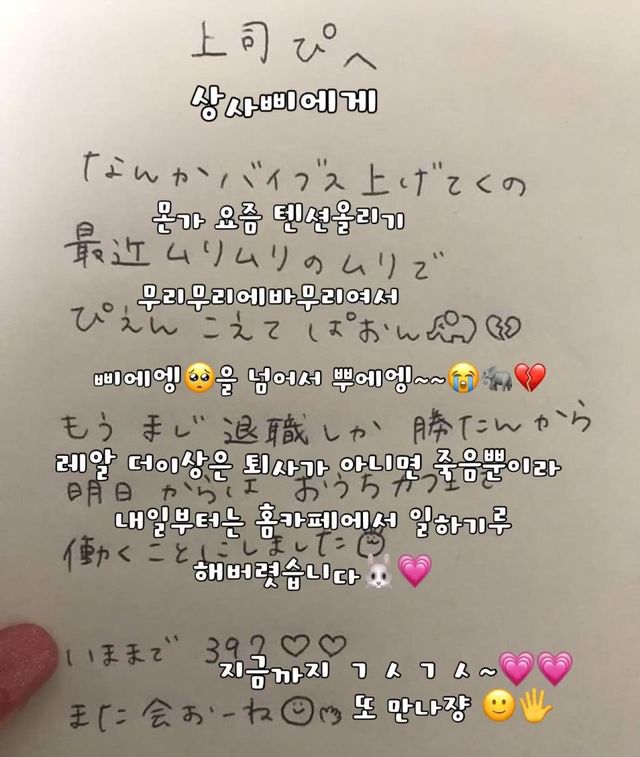 上司ぴへ
상사삐에게
なんかバイブス上げてくの
몬가 요즘 텐션올리기
最近ムリムリのムリで
무리무리에바무리여서
ぴえんこえてぱおん🐘💔
삐에엥🥺을 넘어서 뿌에엥~~😭🐘💔
もうまじ退職しか勝たんから
레알 더이상은 퇴사가 아니면 죽음뿐이라
明日からは おうちカフェで
내일부터는 홈카페에서 일하기루
働くことにしました
해버렷습니다🐰💗
いままで 39?♡♡
지금까지 ㄱㅅㄱㅅ~💗💗
また会おーね☺
또 만나쟝 🙂🖐